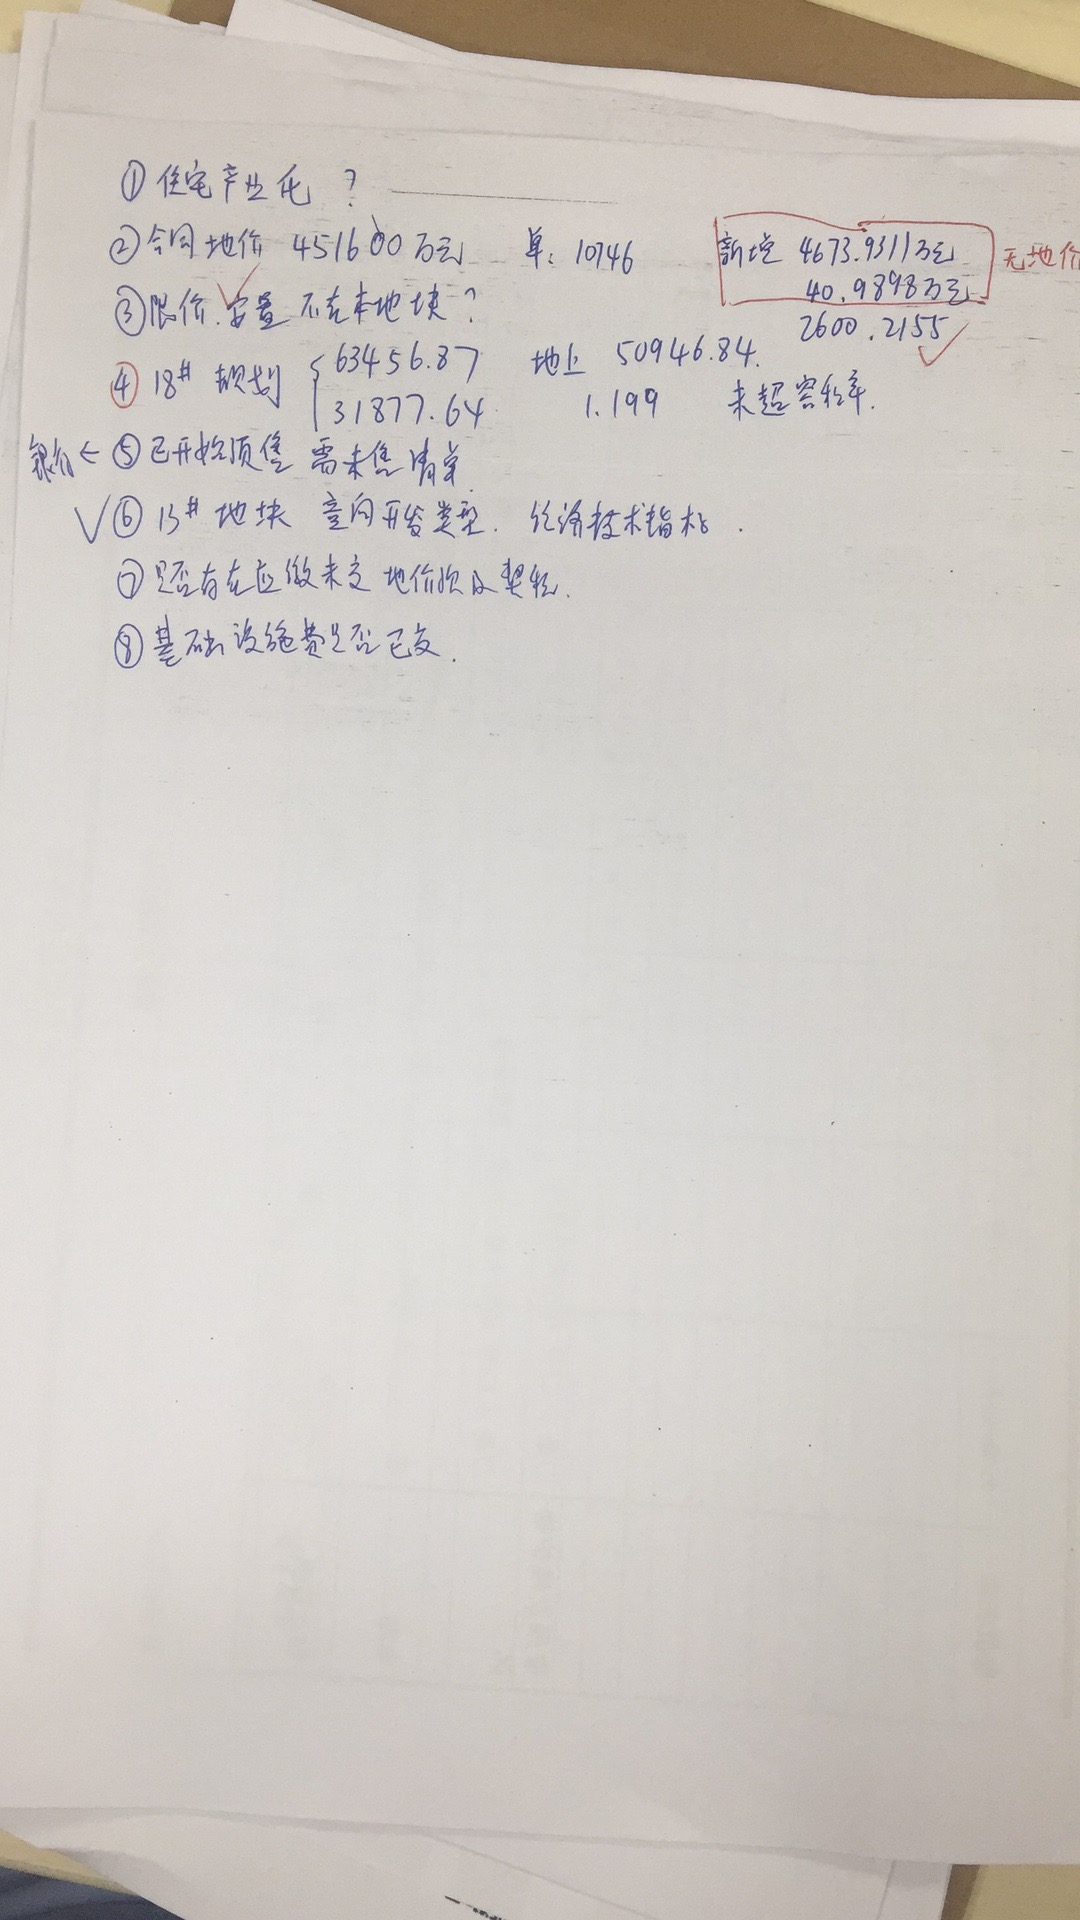 ①住宅产业化?
②合同地价 451600万元 单:10746 新增 4673.9311万元 无地价
40.9898万元
③限价.安置 不在本地块? 2600.2155
④18# 规划 63456.87 地上 50946.84.
31877.64 1.199 未超容积率.
←⑤已开始预售 需未售清单
⑥13#地块 意向开发类型. 经济技术指标.
⑦是否存在应缴未交地价款及契税.
⑧基础设施费是否已交.